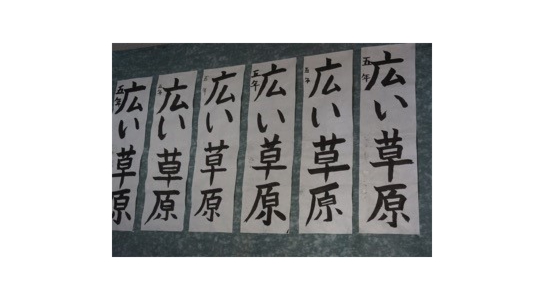 広い草原
五年
広い草原
五年
広い草原
五年
広い草原
広い草原
五年
広い草原
五年